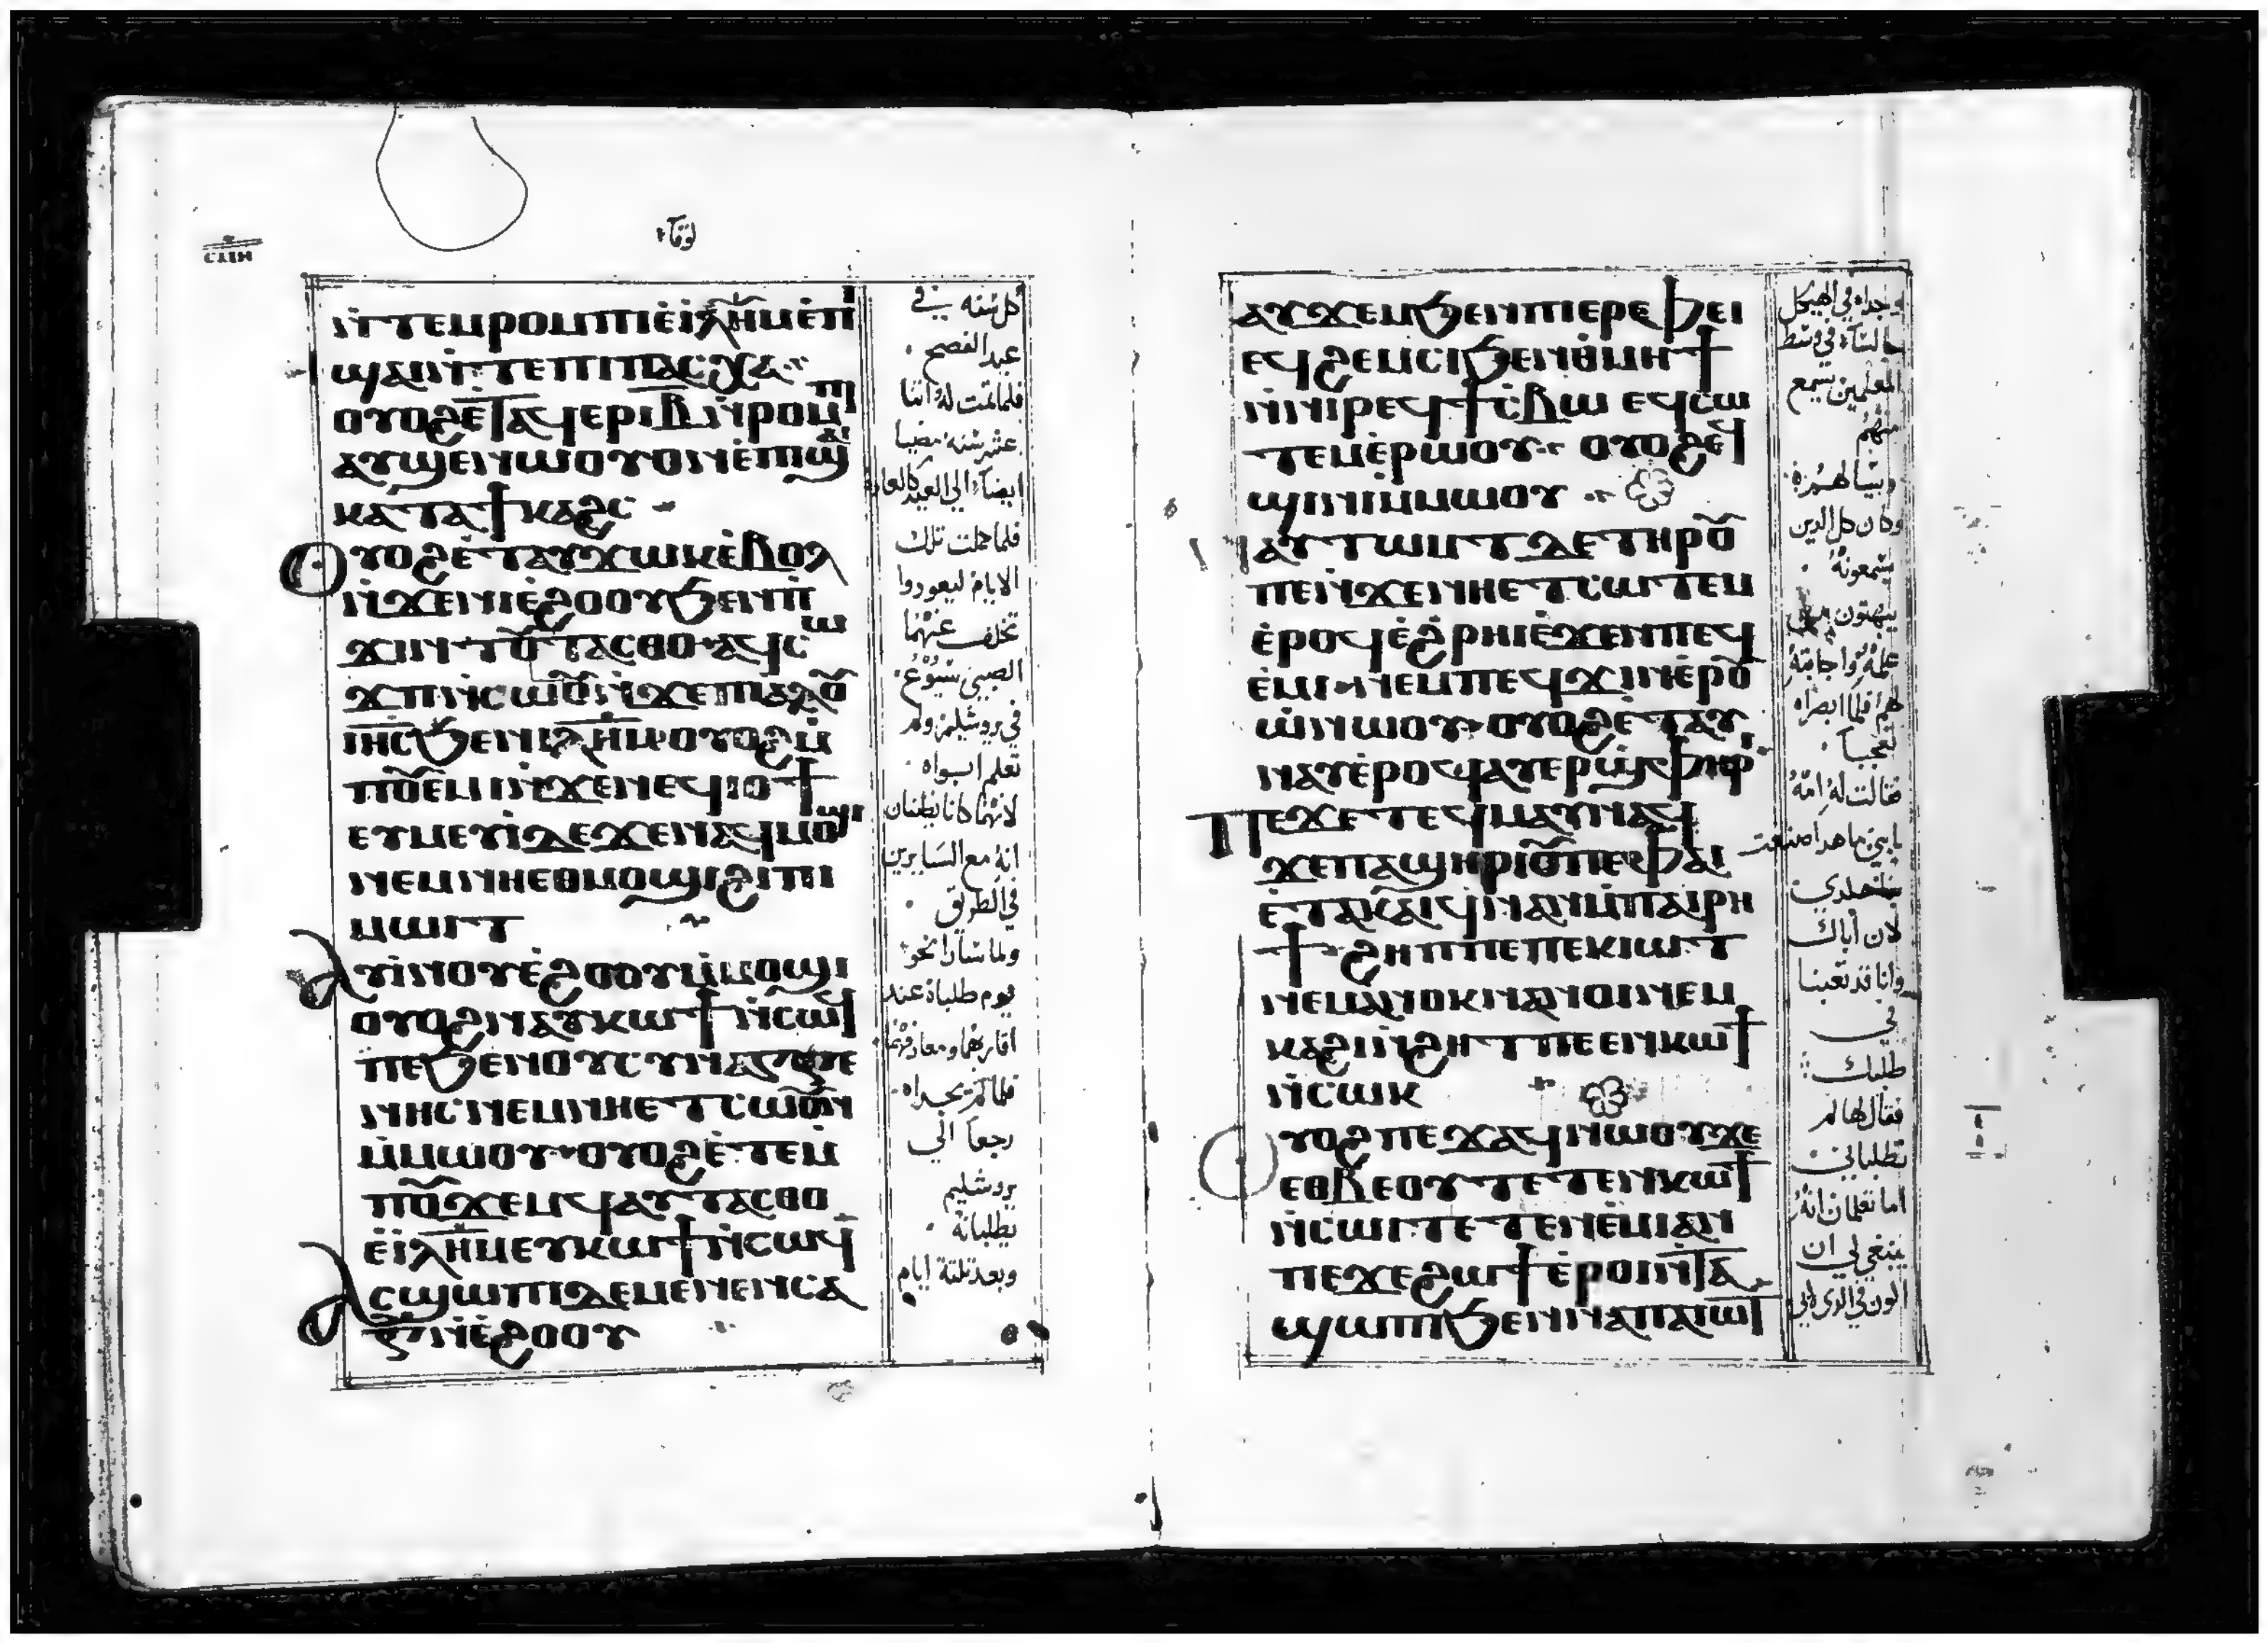 لوقا
ⲛ̀ⲧⲉⲙⲣⲟⲙⲡⲓⲉ̀ⲓ̀ⲗ̅ⲏ̅ⲙ̅ⲉ̀ⲡ̀
ϣⲁⲓⲛ̀ⲧⲉⲡⲓⲡⲁⲥⲭⲁ
ⲟⲩⲟϩⲉ̀ⲧⲁϥⲉⲣⲓ̅ⲃ̅ⲛ̀ⲣⲟⲙⲡⲓ
ⲁⲩϣⲉⲛⲱⲟⲩⲟⲛⲉ̀ⲡϣⲁⲓ
ⲕⲁⲧⲁϯⲕⲁϩⲥ
ⲟⲩⲟϩⲉ̀ⲧⲁⲩϫⲱⲕⲉ̀ⲃⲟⲗ
ⲛ̀ϫⲉⲛⲓⲉ̀ϩⲟⲟⲩϧⲉⲛⲡ̀
ϫⲓⲛⲧⲟⲩⲧⲁⲥⲑⲟ ⲁϥⲥⲱ
ϫⲡⲛ̀ⲥⲱⲟⲩⲛ̀ϫⲉⲡⲓⲁⲗⲟⲩ
ⲓ̅ⲏ̅ⲥ̅ϧⲉⲛⲓ̅ⲗ̅ⲏ̅ⲙ̅ ⲟⲩⲟϩⲙ̀
ⲡⲟⲩⲉⲙⲓⲛ̀ϫⲉⲛⲉϥⲓⲟϯ
ⲉⲩⲙⲉⲩⲓ̀ⲇⲉϫⲉⲛⲁϥⲙⲟϣⲓ
ⲛⲉⲙⲛⲏⲉⲑⲙⲟϣⲓϩⲓⲡⲓ
ⲙⲱⲓⲧ
ⲁⲩⲓ̀ⲛⲟⲩⲉ̀ϩⲟⲟⲩⲙ̀ⲙⲟϣⲓ
ⲟⲩⲟϩⲛⲁⲩⲕⲱϯⲛ̀ⲥⲱϥ
ⲡⲉϧⲉⲛⲟⲩⲥⲩⲛⲅⲉ
ⲛⲏⲥⲛⲉⲙⲛⲏⲉⲧⲥⲱⲟⲩⲛ
ⲙ̀ⲙⲱⲟⲩ ⲟⲩⲟϩⲉ̀ⲧⲉⲙ̀
ⲡⲟⲩϫⲉⲙϥⲁⲩⲧⲁⲥⲑⲟ
ⲉ̀ⲓ̅ⲗ̅ⲏ̅ⲙ̅ⲉⲩⲕⲱϯⲛ̀ⲥⲱϥ
ⲁⲥϣⲱⲡⲓⲇⲉⲙⲉⲛⲉⲛⲥⲁ
ⲅ̅ⲛ̀ⲉ̀ϩⲟⲟⲩ
كل سنه في
عيد الفصح
فلما تمت له اثنا
عشر سنه مضيا
ايضا الي العيد كالعادة
فلما كملت تلك
الايام ليعودوا
تخلف عنهما
الصبي يسوع
في يروشليم ولم
تعلم ابواه
لانهما كانا يظنان
انه مع السايرين
في الطريق
ولما سارا نحو
يوم طلباه عند
اقاربهما ومعارفهما
فلما لم يجداه
رجعا الي
يروشليم
يطلبانه
وبعد ثلثة ايام
ⲁⲩϫⲉⲙϥϧⲉⲛⲡⲓⲉⲣⲫⲉⲓ
ⲉϥϩⲉⲙⲥⲓϧⲉⲛⲑⲙⲏϯ
ⲛ̀ⲛⲓⲣⲉϥϯⲥⲃⲱ ⲉϥⲥⲱ
ⲧⲉⲙⲉ̀ⲣⲱⲟⲩ ⲟⲩⲟϩⲉϥ
ϣⲓⲛⲓⲙ̀ⲙⲱⲟⲩ
ⲛⲁⲩⲧⲱⲙⲧⲇⲉⲧⲏⲣⲟⲩ
ⲡⲉⲛ̀ϫⲉⲛⲏⲉⲧⲥⲱⲧⲉⲙ
ⲉ̀ⲣⲟϥⲉ̀ϩⲣⲏⲓⲉ̀ϫⲉⲛⲡⲉϥ
ⲉ̀ⲙⲓ ⲛⲉⲙⲡⲉϥϫⲓⲛⲉ̀ⲣⲟⲩ
ⲱ̀ⲛⲱⲟⲩ ⲟⲩⲟϩⲉ̀ⲧⲁⲩ
ⲛⲁⲩⲉ̀ⲣⲟϥⲁⲩⲉⲣϣⲫⲏⲣⲓ
ⲡⲉϫⲉⲧⲉϥⲙⲁⲩⲛⲁϥ
ϫⲉⲡⲁϣⲏⲣⲓⲟⲩⲡⲉⲫⲁⲓ
ⲉ̀ⲧⲁⲕⲁⲓϥⲛⲁⲛⲙ̀ⲡⲁⲓⲣⲏ
ϯ ϩⲏⲡⲡⲉⲡⲉⲕⲓⲱⲧ
ⲛⲉⲙⲁⲛⲟⲕⲛⲁⲛⲟⲓⲛⲉⲙ
ⲕⲁϩⲛ̀ϩⲏⲧⲡⲉⲉⲛⲕⲱϯ
ⲛ̀ⲥⲱⲕ
ⲟⲩⲟϩⲡⲉϫⲁϥⲛⲱⲟⲩϫⲉ
ⲉⲑⲃⲉⲟⲩⲧⲉⲧⲉⲛⲕⲱϯ
ⲛ̀ⲥⲱⲓⲧⲉⲧⲉⲛⲉ̀ⲙⲓⲁⲛ
ⲡⲉϫⲉϩⲱϯⲉ̀ⲣⲟⲓⲛ̀ⲧⲁ
ϣⲱⲡⲓϧⲉⲛⲛⲁⲡⲁⲓⲱⲧ
وجداه في الهيكل
جالسا في وسط
المعلمين يسمع
منهم
ويسالهم
وكان كل الذين
يسمعونه
يبهتون من
علمه واجابته
لهم فلما ابصراه
تعجبا
فقالت له امه
يا بني ما هدا صنعت
بنا هكدي
لان اباك
وانا قد تعبنا
في
طلبك
فقال لهما لم
تطلباني
اما تعلمان انه
ينبغي لي ان
اكون في الذي لابي